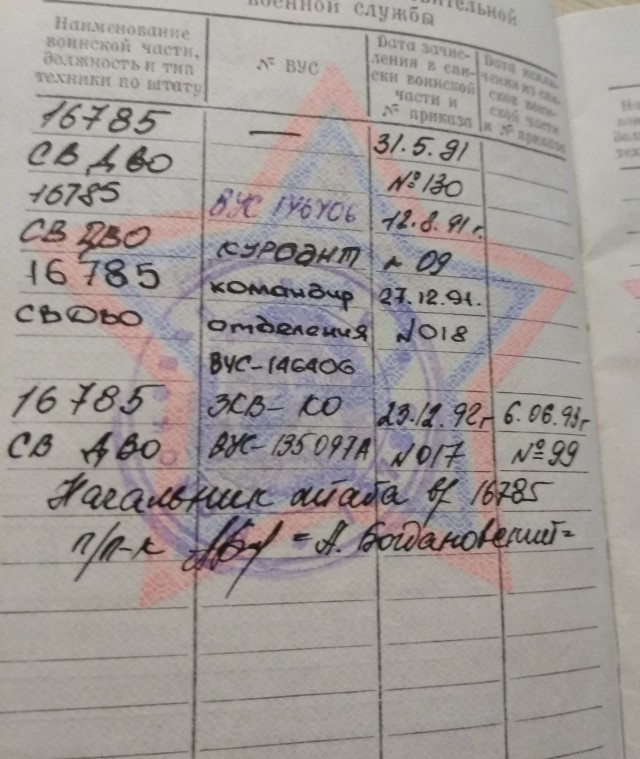 военной службы
Наименование воинской части, должность и тип техники по штату
№ ВУС
Дата зачисления в списки воинской части и № приказа
16785 — 31.5.91
СВ ДВО №130
16785 ВУС 146406 12.8.91 г.
СВ ДВО курсант № 09
16785 командир 27.12.91.
СВ ДВО отделения №018
ВУС-146406
16785 ЗКВ-КО 23.12.92г 6.06.93г
СВ ДВО ВУС-135097А №017 №99
Начальник штаба в/ч 16785
п/п-к = А. Богдановский =